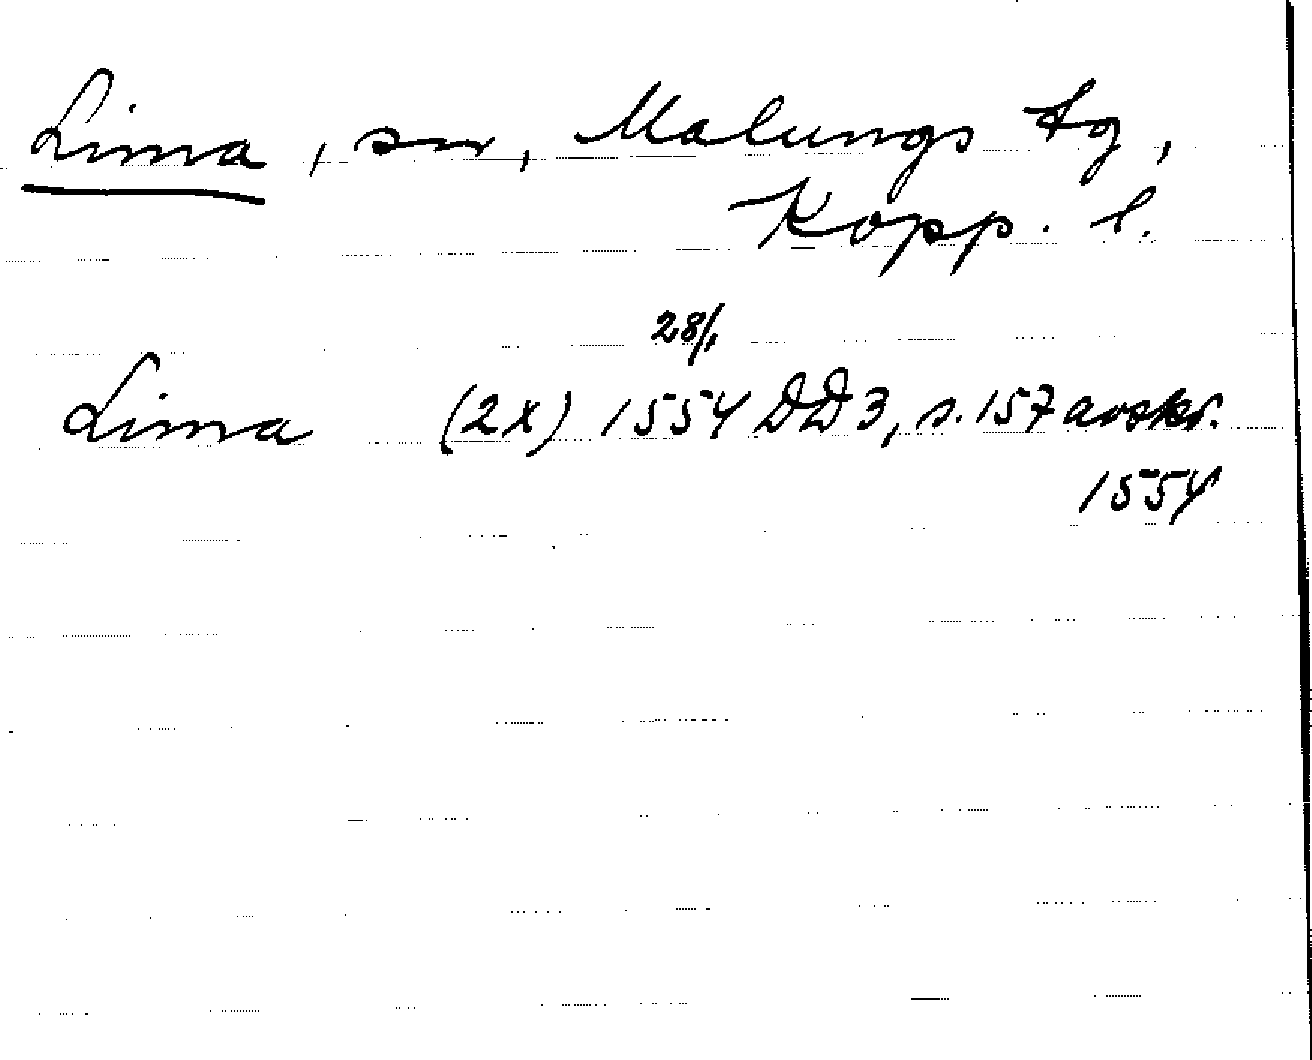 Lima, sn, Malungs tg,
Kopp. l.
28/1
Lima (2x) 1554 DD3, s. 157 avskr.
1554